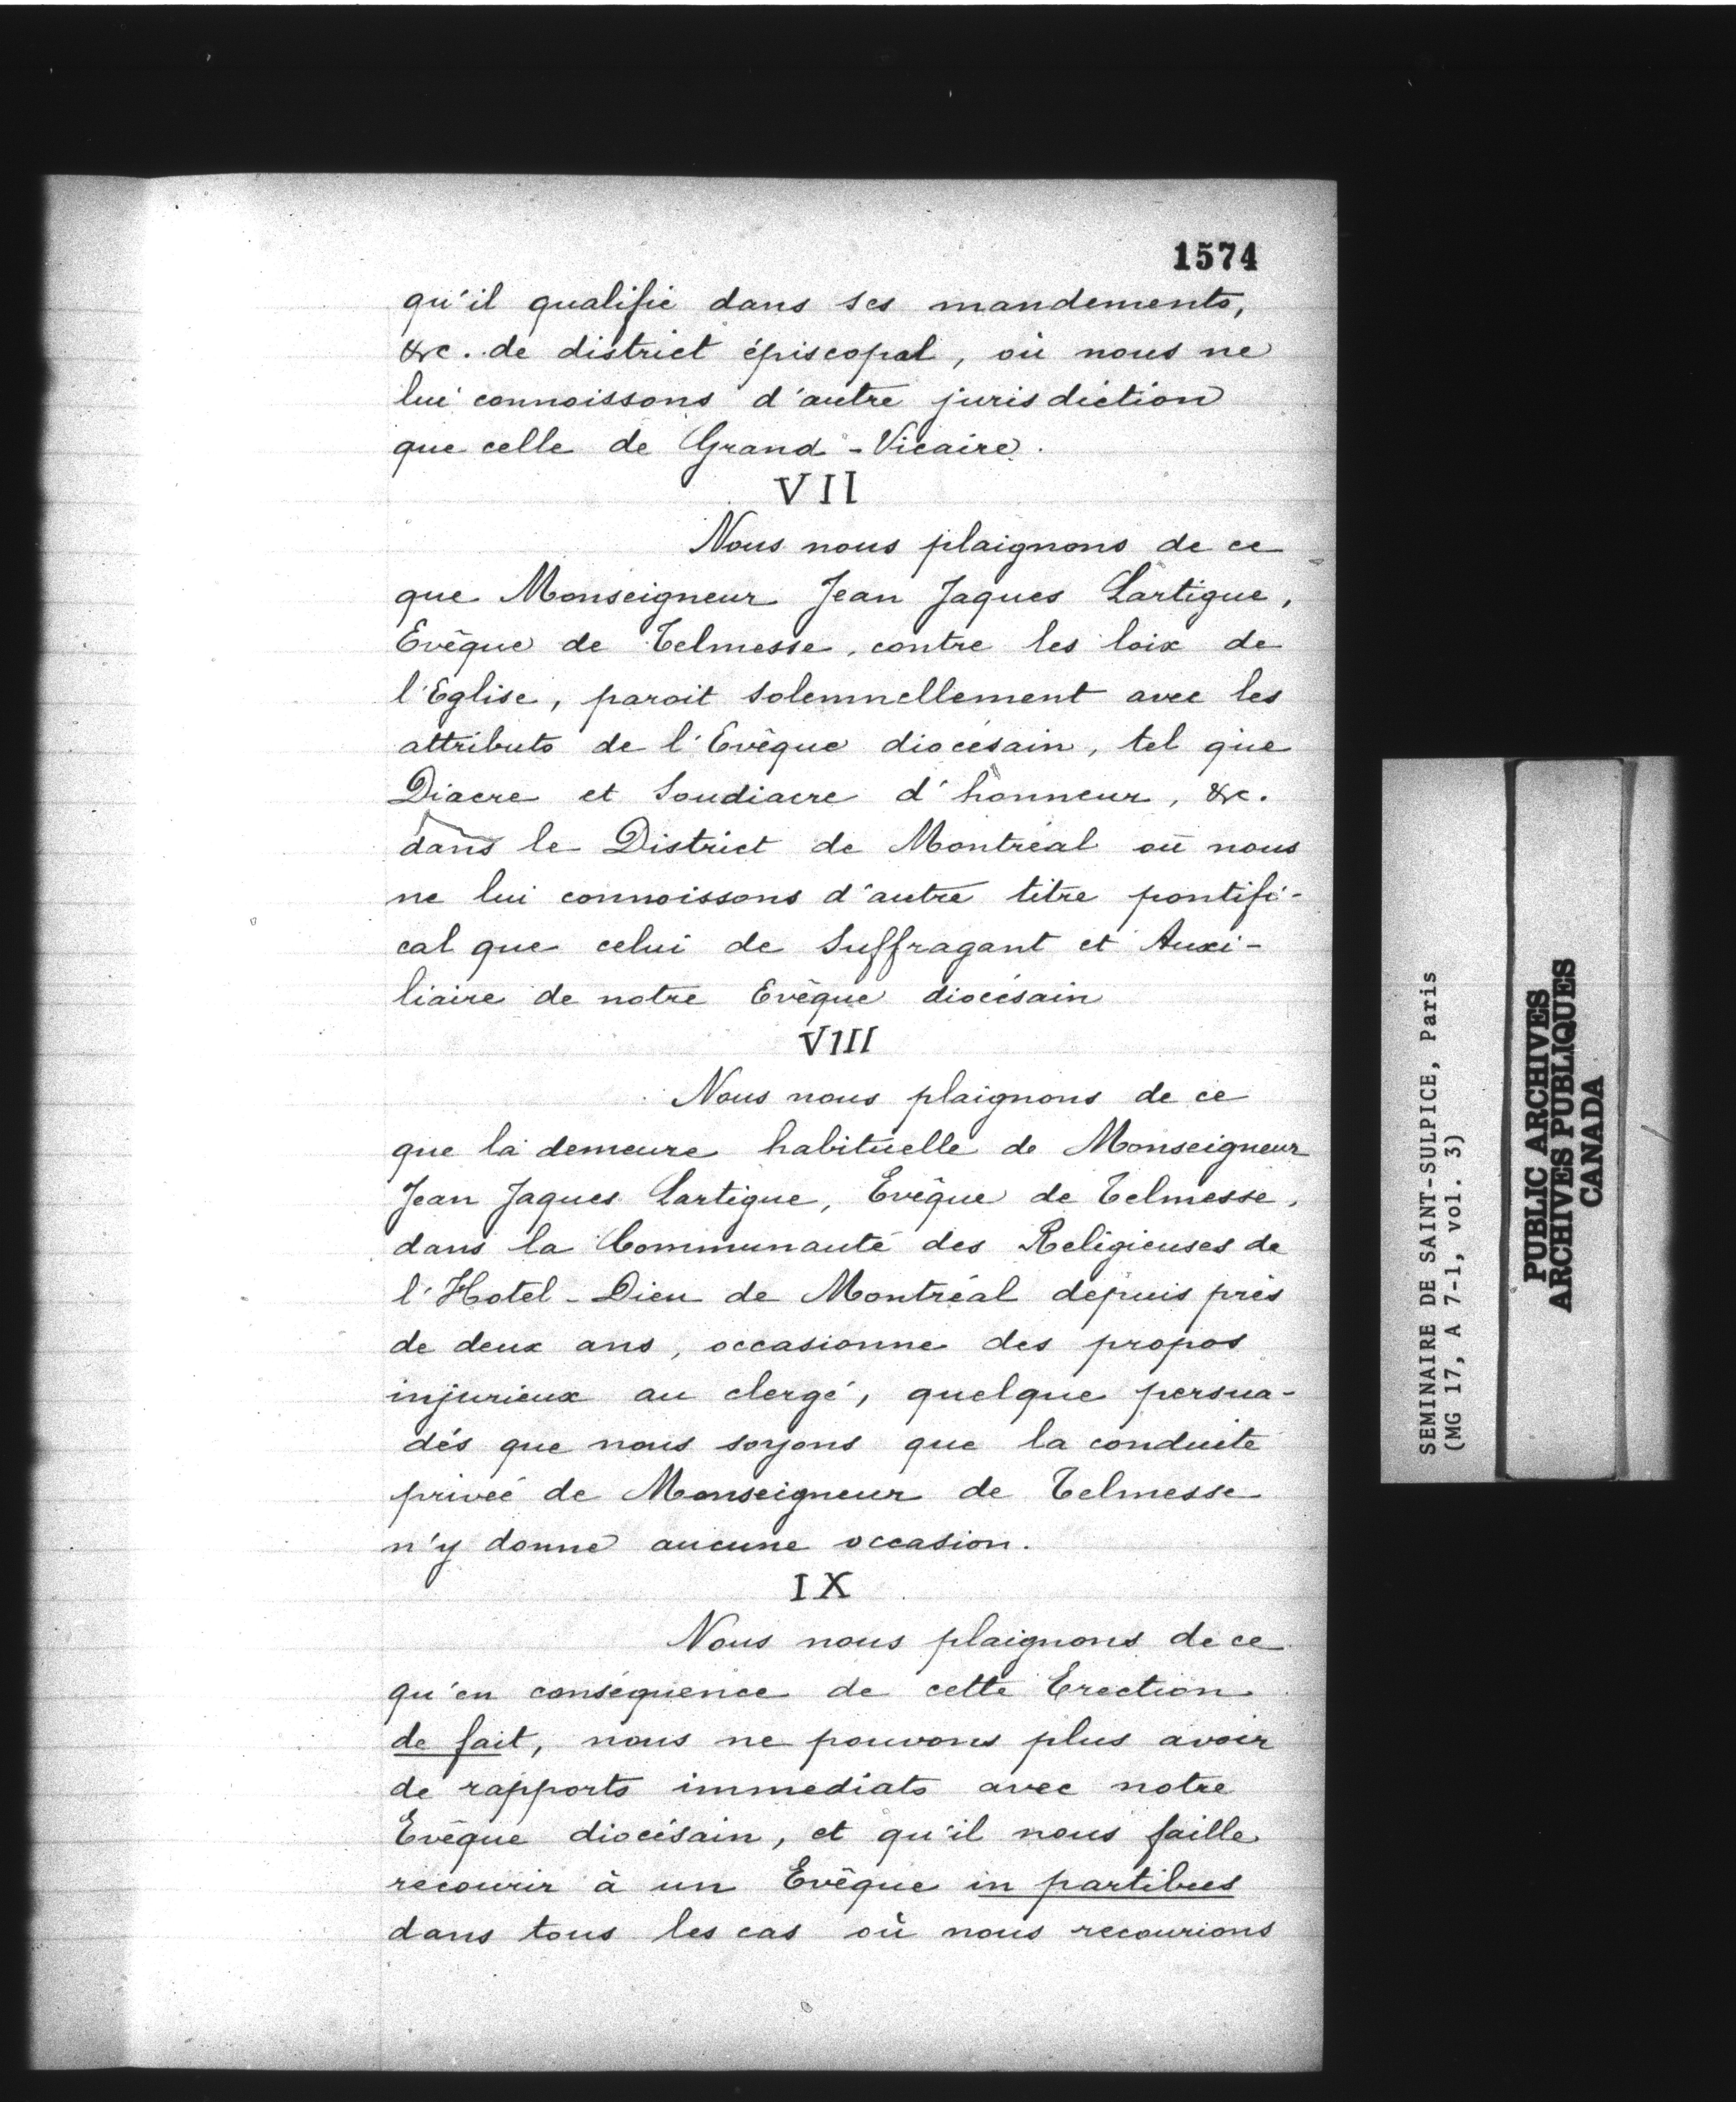 1574
qu'il qualifie dans ses mandements,
&c. de district épiscopal, où nous ne
lui connoissons d'autre jurisdiction
que celle de Grand-Vicaire.
VII
Nous nous plaignons de ce
que Monseigneur Jean Jaques Lartigue,
Evêque de Telmesse, contre les loix de
l'Eglise, paroit solemnellement avec les
attributs de l'Evêque diocésain, tel que
Diacre et Soudiacre d'honneur, &c.
dans le District de Montréal où nous
ne lui connoissons d'autre titre pontifi-
cal que celui de Suffragant et Auxi-
liaire de notre Evêque diocésain
VIII
Nous nous plaignons de ce
que la demeure habituelle de Monseigneur
Jean Jaques Lartigue, Evêque de Telmesse,
dans la Communauté des Religieuses de
l'Hotel-Dieu de Montréal depuis près
de deux ans, occasionne des propos
injurieux au clergé, quelque persua-
dés que nous soyons que la conduite
privée de Monseigneur de Telmesse
n'y donne aucune occasion.
IX
Nous nous plaignons de ce
qu'en conséquence de cette Erection
de fait, nous ne pouvons plus avoir
de rapports immediats avec notre
Evêque diocésain, et qu'il nous faille
recourir à un Evêque in partibus
dans tous les cas où nous recourions
SEMINAIRE DE SAINT-SULPICE, Paris
(MG 17, A 7-1, vol. 3)
PUBLIC ARCHIVES
ARCHIVES PUBLIQUES
CANADA